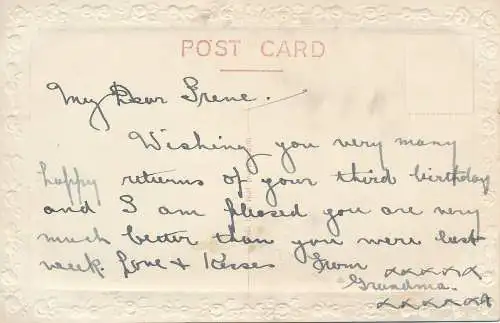 POST CARD
My Dear Irene.
Wishing you very many
happy returns of your third birthday
and I am pleased you are very
much better than you were last
week. Love & Kisses From xxxxx
Grandma.
xxxxxx